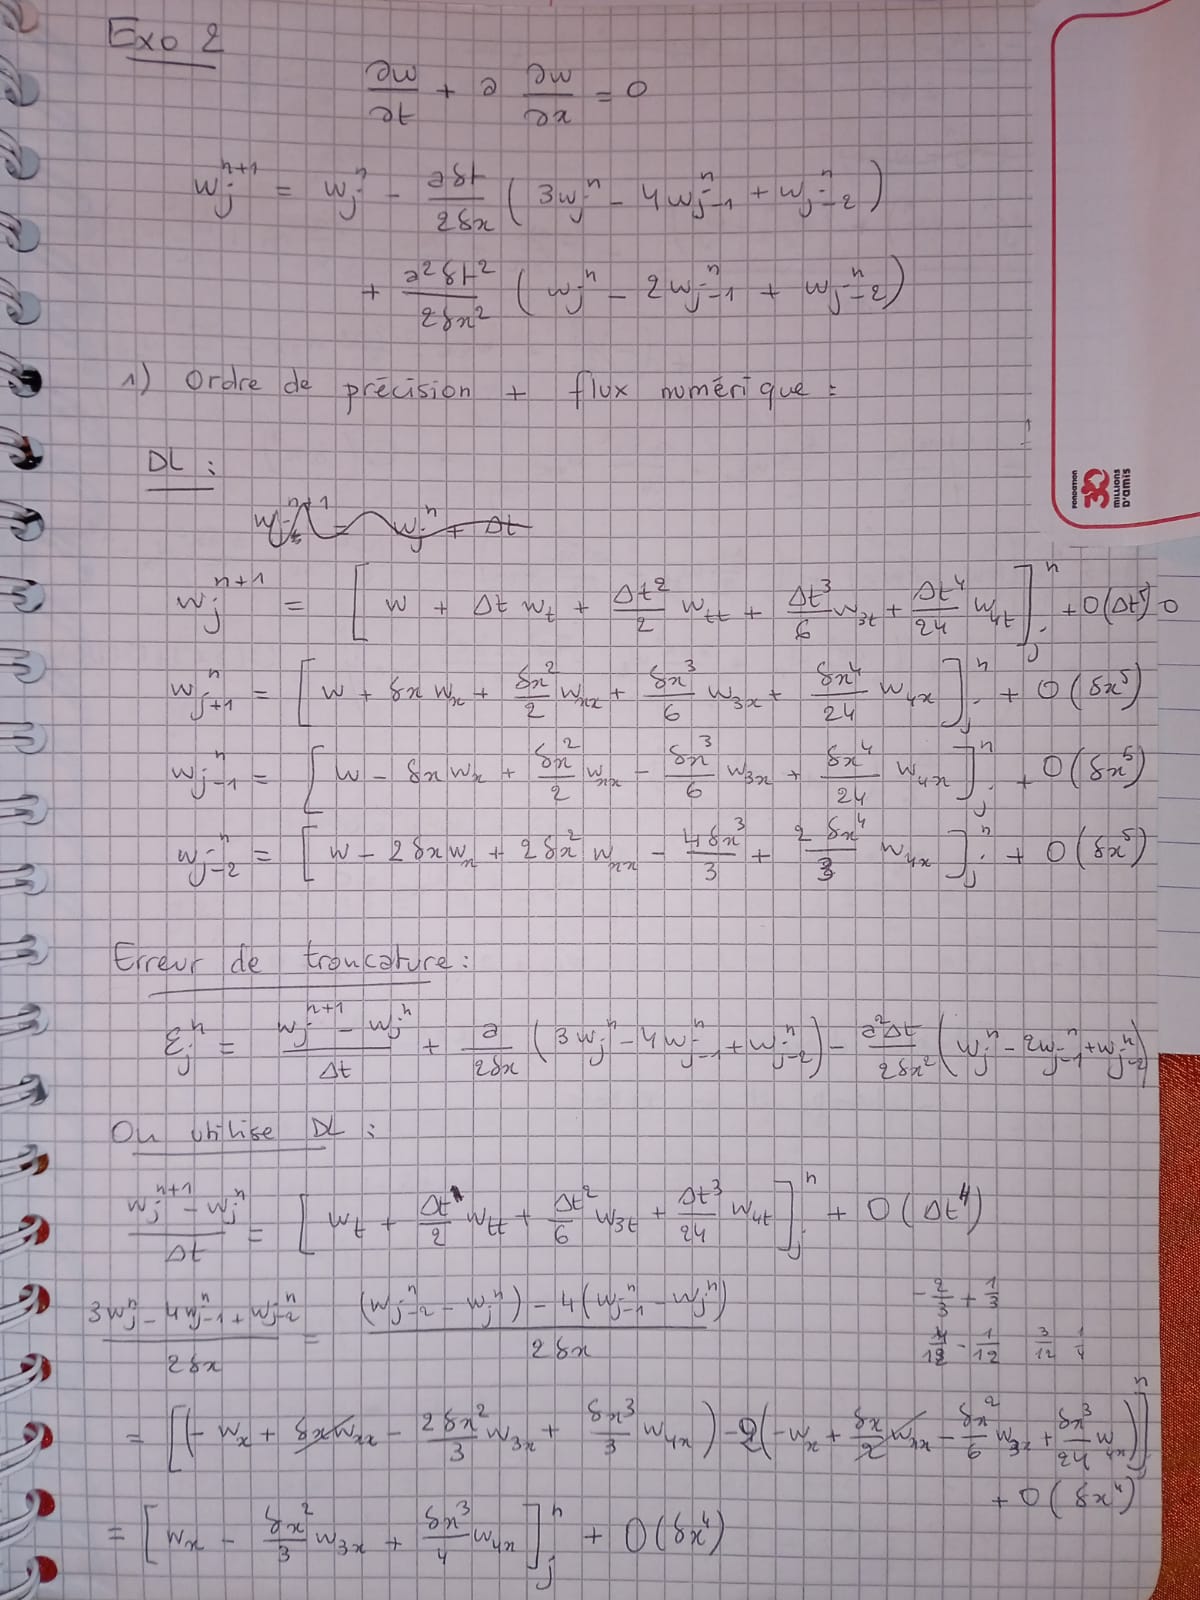 Exo 2
∂w/∂t + a ∂w/∂x = 0
w_j^{n+1} = w_j^n - aδt/2δx ( 3w_j^n - 4w_{j-1}^n + w_{j-2}^n )
+ a²δt²/2δx² ( w_j^n - 2w_{j-1}^n + w_{j-2}^n )
1) Ordre de précision + flux numérique :
DL :
w_j^{n+1} = [ w + Δt w_t + Δt²/2 w_{tt} + Δt³/6 w_{3t} + Δt⁴/24 w_{4t} ]_j^n + O(Δt⁵)
w_{j+1}^n = [ w + δx w_x + δx²/2 w_{xx} + δx³/6 w_{3x} + δx⁴/24 w_{4x} ]_j^n + O(δx⁵)
w_{j-1}^n = [ w - δx w_x + δx²/2 w_{xx} - δx³/6 w_{3x} + δx⁴/24 w_{4x} ]_j^n + O(δx⁵)
w_{j-2}^n = [ w - 2δx w_x + 2δx² w_{xx} - 4δx³/3 + 2δx⁴/3 w_{4x} ]_j^n + O(δx⁵)
Erreur de troncature :
ε_j^n = (w_j^{n+1} - w_j^n)/Δt + a/2δx ( 3w_j^n - 4w_{j-1}^n + w_{j-2}^n ) - a²Δt/2δx² ( w_j^n - 2w_{j-1}^n + w_{j-2}^n )
On utilise DL :
(w_j^{n+1} - w_j^n)/Δt = [ w_t + Δt/2 w_{tt} + Δt²/6 w_{3t} + Δt³/24 w_{4t} ]_j^n + O(Δt⁴)
(3w_j^n - 4w_{j-1}^n + w_{j-2}^n)/2δx = ((w_{j-2}^n - w_j^n) - 4(w_{j-1}^n - w_j^n))/2δx
-2/3 + 1/3
- 1/12 3/12 1/4
= [ (- w_x + δx w_{xx} - 2δx²/3 w_{3x} + δx³/3 w_{4x} ) - 2(- w_x + δx/2 w_{xx} - δx²/6 w_{3x} + δx³/24 w_{4x}) ]_j^n
+ O(δx⁴)
= [ w_x - δx²/3 w_{3x} + δx³/4 w_{4x} ]_j^n + O(δx⁴)
FONDATION
30
MILLIONS
D'AMIS